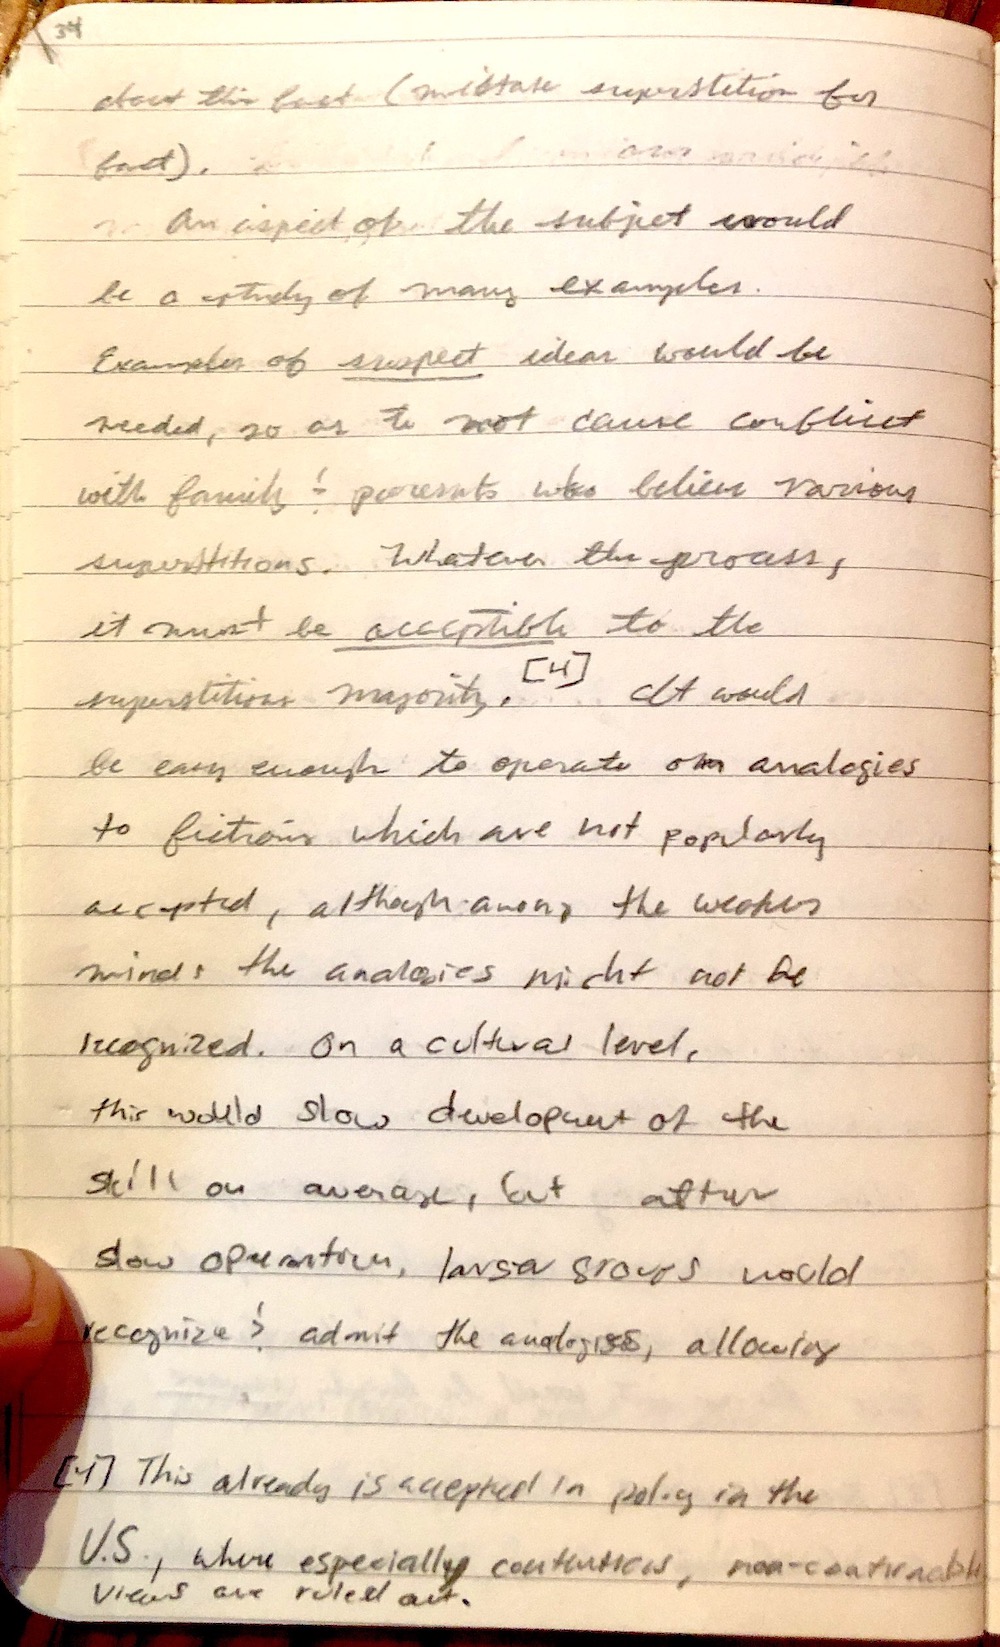 34
about this fact (mistake superstition for
fact).
An aspect of the subject would
be a study of many examples.
Examples of suspect ideas would be
needed, so as to not cause conflict
with family & parents who believe various
superstitions. Whatever the process,
it must be acceptible to the
superstitious majority.[4] It would
be easy enough to operate on analogies
to fictions which are not popularly
accepted, although among the weaker
minds the analogies might not be
recognized. On a cultural level,
this would slow development of the
skill on average, but after
slow operation, larger groups would
recognize & admit the analogies, allowing
[4] This already is accepted in policy in the
U.S., where especially contentious, non-confirmable
views are ruled out.